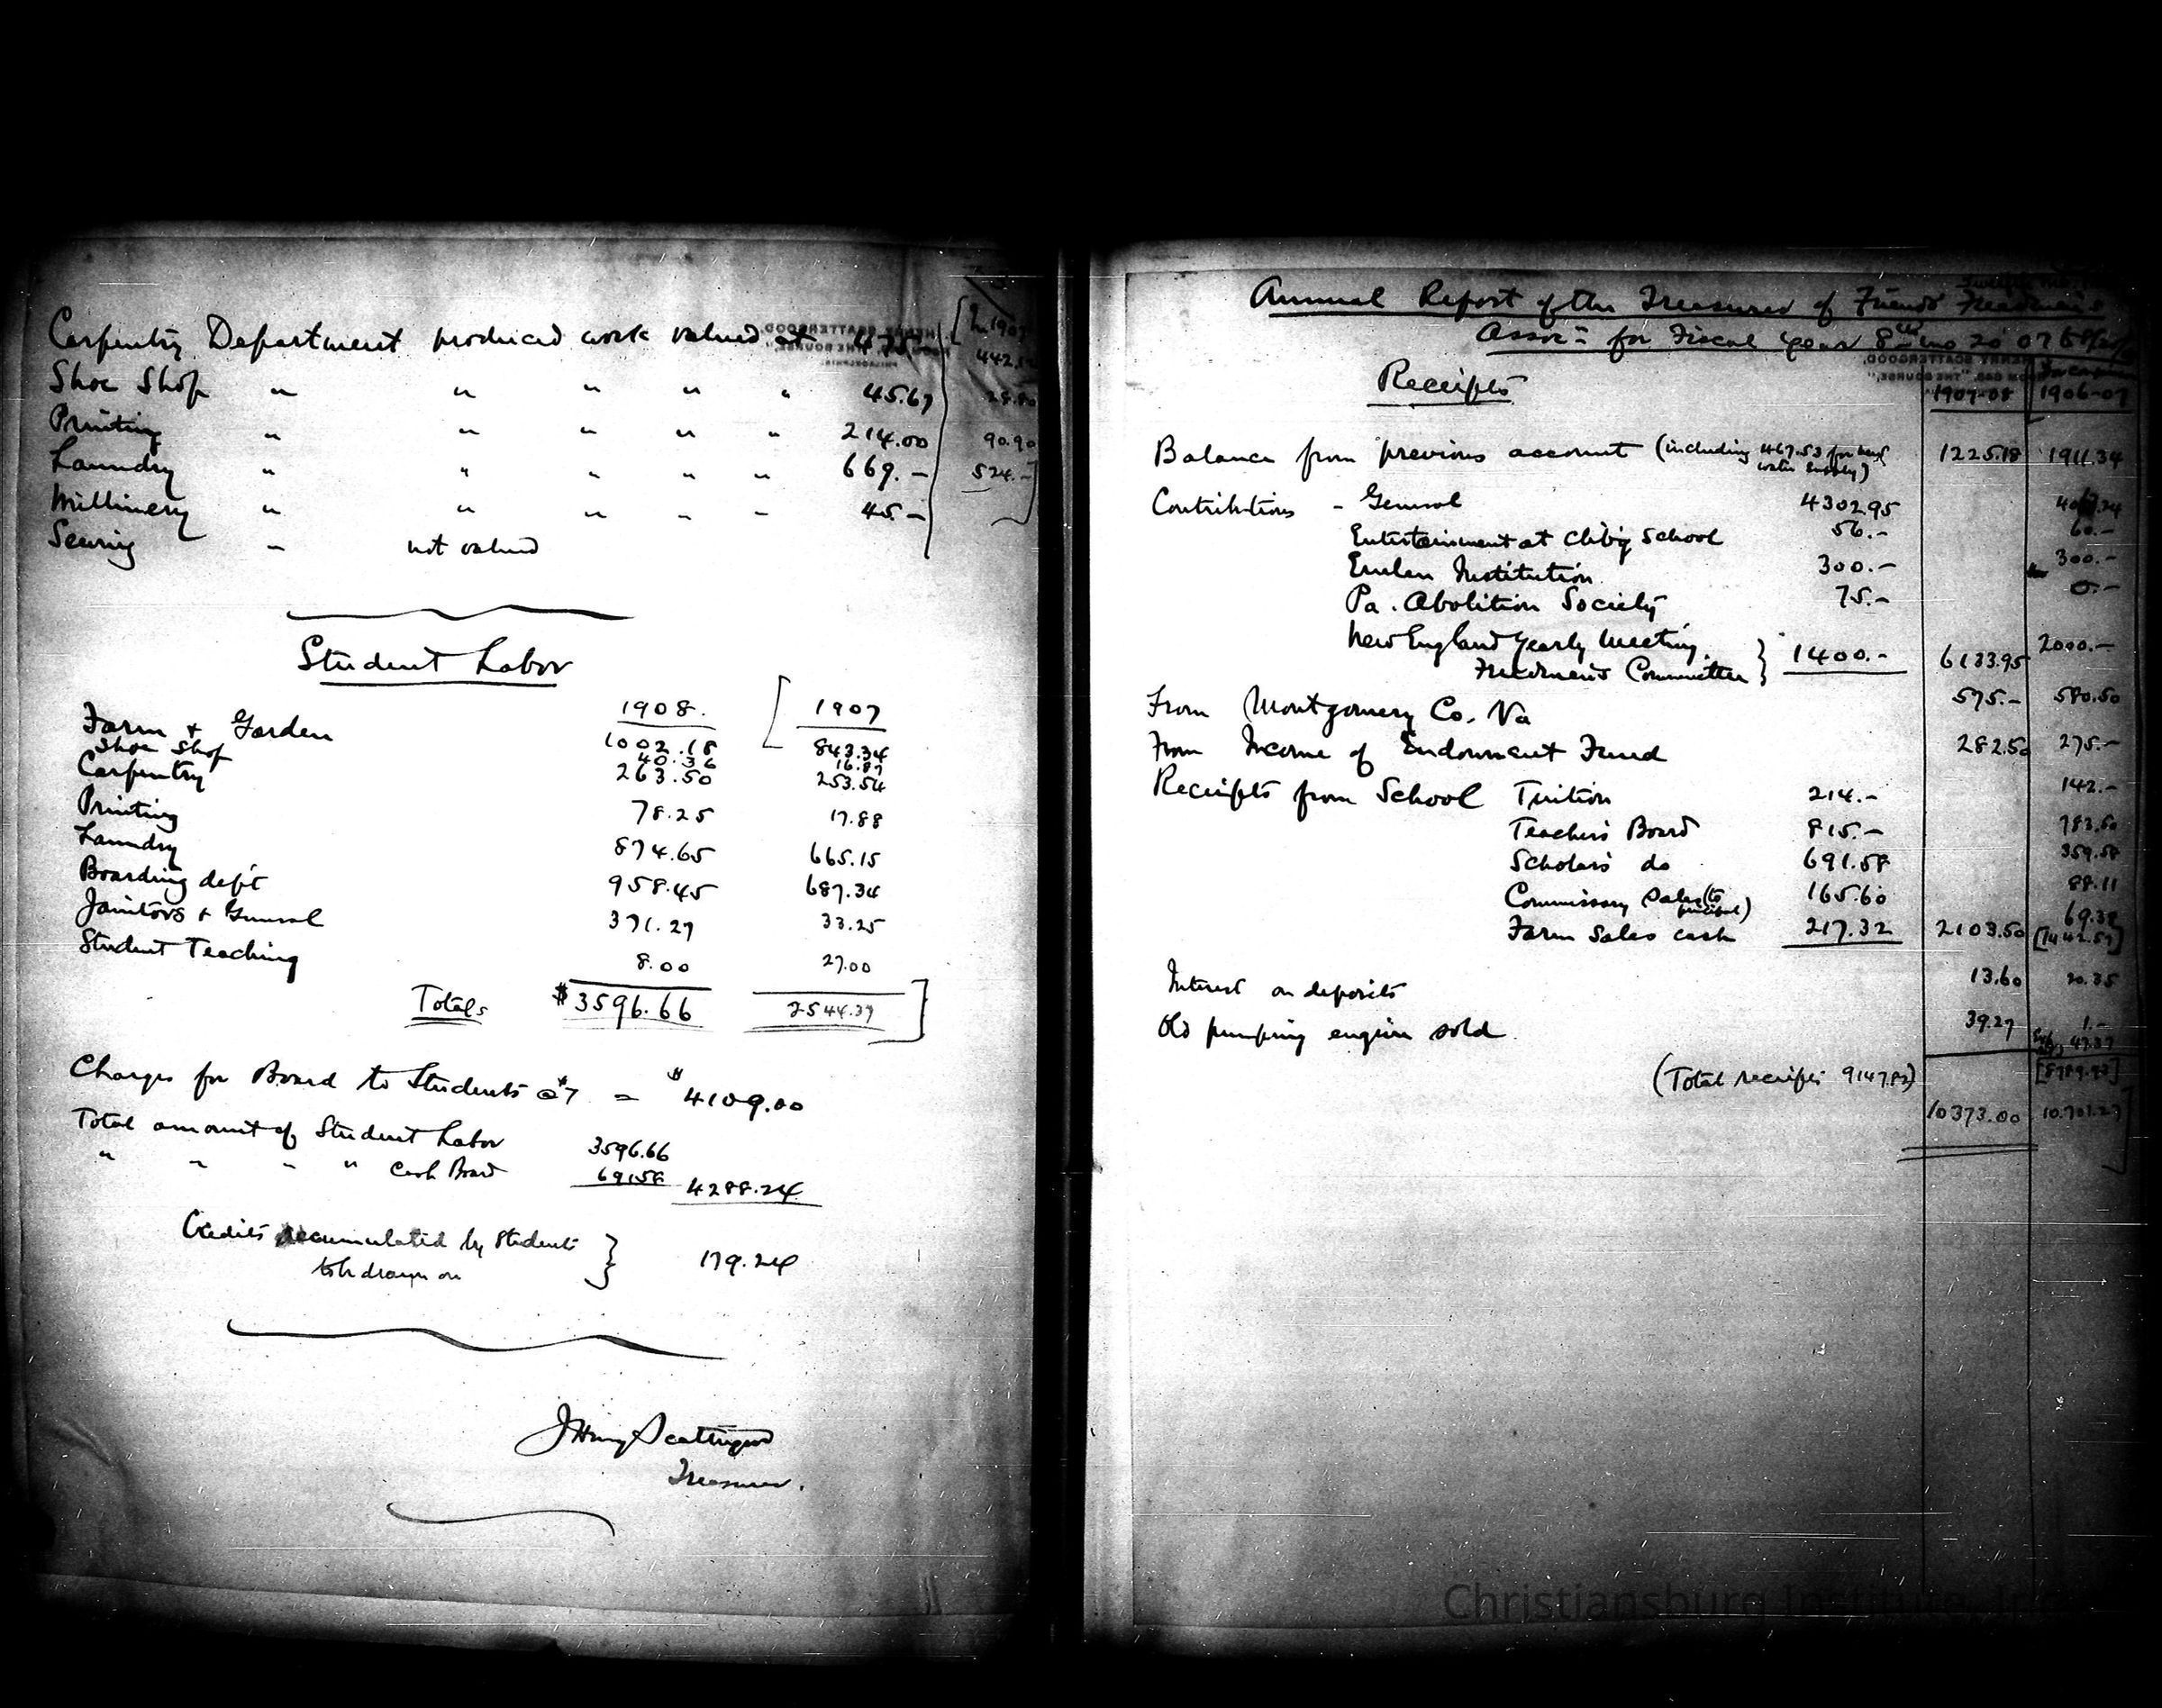 Carpentry Department produced work valued at
Shoe Shop " " " " " 45.67
Printing " " " " " 214.00 90.90
Laundry " " " " " 669.- 524.-
Millinery " " " - - 45.-
Sewing - not valued
Student Labor
1908. [ 1907
Farm & Garden 1002.18 843.34
Shoe Shop 40.36 16.87
Carpentry 263.50 253.54
Printing 78.25 17.88
Laundry 874.65 665.15
Boarding dep't 958.45 687.34
Janitors & General 371.27 33.25
Student Teaching 8.00 27.00
Totals $3596.66 2544.37 ]
Charges for Board to Students @ $7 = $4109.00
Total amount of Student Labor 3596.66
" " " " Cash Board 691.58 4288.24
Credits accumulated by Students
to be drawn on } 179.24
J Henry Scattergood
Treasurer.
Annual Report of the Treasurer of Friends' Freedmen's
Ass'n for Fiscal year 8th mo 20 07
Receipts
1907-08 1906-07
Balance from previous account (including 467.53 for
water supply) 1225.18 1911.34
Contributions - General 4302.95
Entertainment at Ch'b'g School 56.- 60.-
Emlen Institution 300.- 300.-
Pa. Abolition Society 75.- 0.-
New England Yearly Meeting
Freedmen's Committee } 1400.- 6133.95 2000.-
From Montgomery Co. Va 575.- 580.50
From Income of Endowment Fund 282.50 275.-
Receipts from School Tuition 214.- 142.-
Teachers Board 815.- 783.60
Scholars do 691.58 359.58
Commissary Sales (to
principal) 165.60 88.11
Farm Sales cash 217.32 2103.50 69.38 [1442.57]
Interest on deposits 13.60 20.35
Old pumping engine sold 39.27 1.-
(Total receipts 9147.82)
10373.00 10.701.27
Christiansburg Institute, Inc